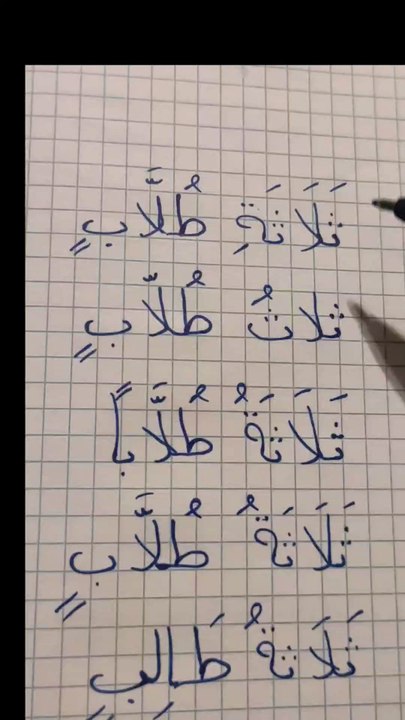 ثَلَاثَةِ طُلَّابٍ
ثلاثُ طُلَّابٍ
ثَلَاثَةُ طُلَّابًا
ثَلَاثَةُ طُلَّابٍ
ثَلَاثَةُ طَالِبٍ